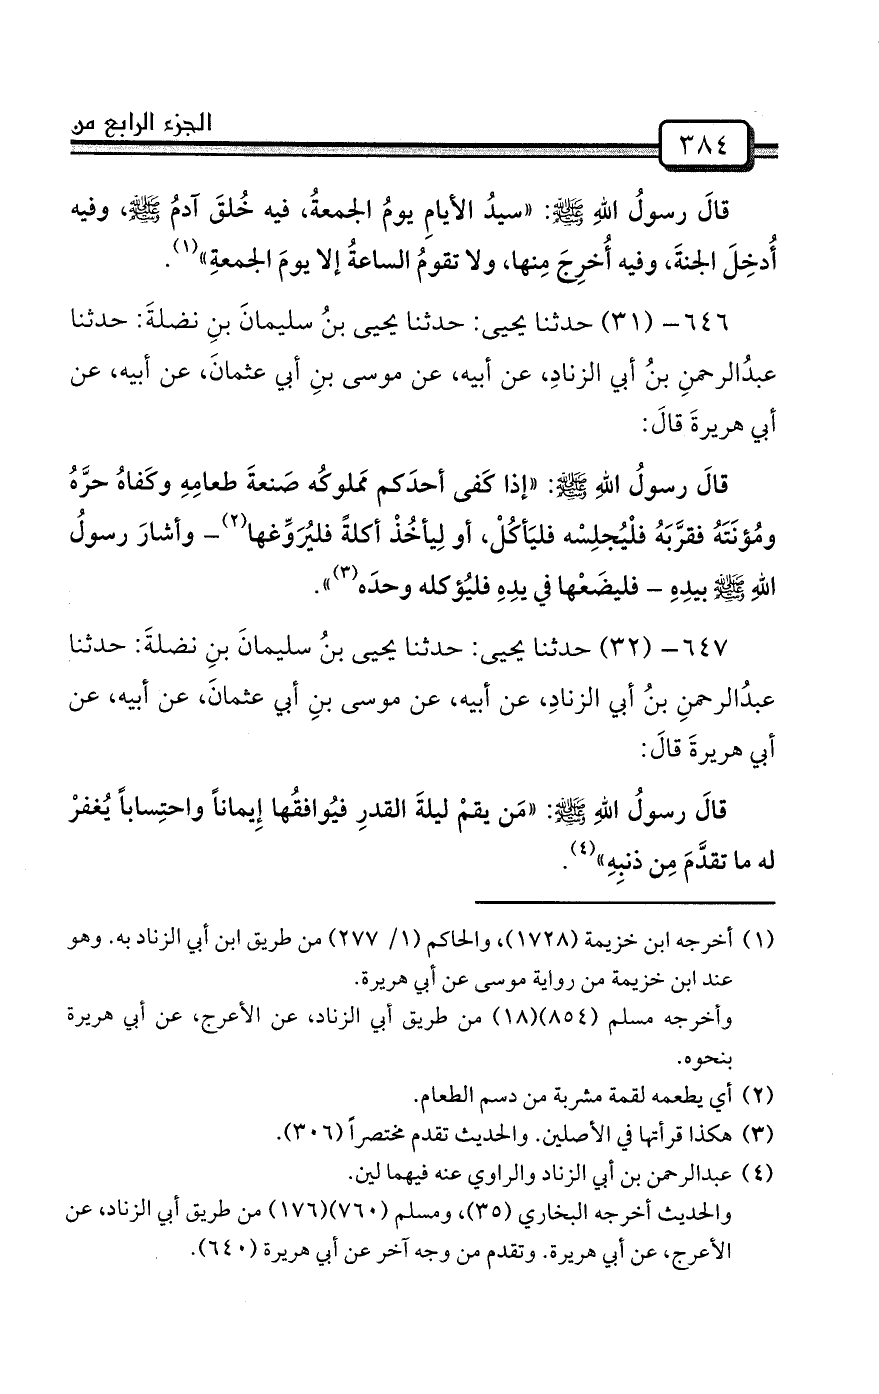 الجزء الرابع من
٣٨٤
قالَ رسولُ اللهِ ﷺ: «سيدُ الأيامِ يومُ الجمعةُ، فيه خُلقَ آدمُ ﷺ، وفيه
أُدخِلَ الجنةَ، وفيه أُخرِجَ مِنها، ولا تقومُ الساعةُ إلا يومَ الجمعةِ»(١).
٦٤٦- (٣١) حدثنا يحيى: حدثنا يحيى بنُ سليمانَ بنِ نضلةَ: حدثنا
عبدُالرحمنِ بنُ أبي الزنادِ، عن أبيه، عن موسى بنِ أبي عثمانَ، عن أبيه، عن
أبي هريرةَ قالَ:
قالَ رسولُ اللهِ ﷺ: «إذا كَفى أحدَكم مَملوكُه صَنعةَ طعامِهِ وكَفاهُ حرَّهُ
ومُؤنَتَهُ فقرَّبَهُ فلْيُجلِسْه فليَأكُلْ، أو لِيأخُذْ أكلةً فليُرَوِّغها(٢) – وأشارَ رسولُ
اللهِ ﷺ بيدِهِ – فليضَعْها في يدِهِ فليُؤكله وحدَه(٣)».
٦٤٧- (٣٢) حدثنا يحيى: حدثنا يحيى بنُ سليمانَ بنِ نضلةَ: حدثنا
عبدُالرحمنِ بنُ أبي الزنادِ، عن أبيه، عن موسى بنِ أبي عثمانَ، عن أبيه، عن
أبي هريرةَ قالَ:
قالَ رسولُ اللهِ ﷺ: «مَن يقمْ ليلةَ القدرِ فيُوافقُها إِيماناً واحتِساباً يُغفرْ
له ما تقدَّمَ مِن ذنبِهِ»(٤).
(١) أخرجه ابن خزيمة (١٧٢٨)، والحاكم (١/ ٢٧٧) من طريق ابن أبي الزناد به. وهو
عند ابن خزيمة من رواية موسى عن أبي هريرة.
وأخرجه مسلم (٨٥٤)(١٨) من طريق أبي الزناد، عن الأعرج، عن أبي هريرة
بنحوه.
(٢) أي يطعمه لقمة مشربة من دسم الطعام.
(٣) هكذا قرأتها في الأصلين. والحديث تقدم مختصراً (٣٠٦).
(٤) عبدالرحمن بن أبي الزناد والراوي عنه فيهما لين.
والحديث أخرجه البخاري (٣٥)، ومسلم (٧٦٠)(١٧٦) من طريق أبي الزناد، عن
الأعرج، عن أبي هريرة. وتقدم من وجه آخر عن أبي هريرة (٦٤٠).